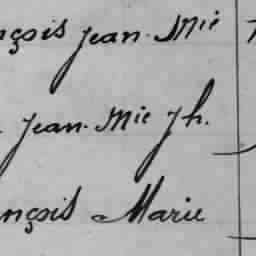 nçois Jean-Mie
Jean-Mie Jh.
nçois Marie